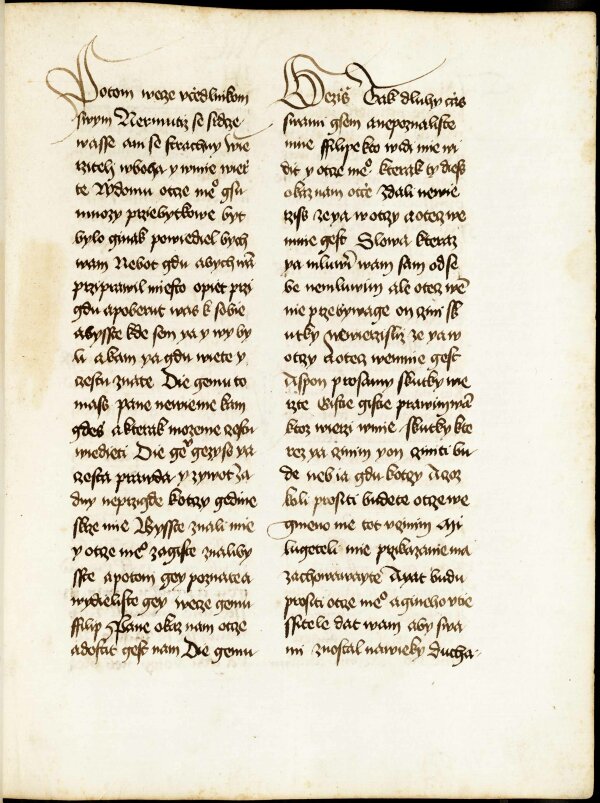 Potom wece vcedlnikom
swym Nermutiz se sidce
wasse ani se strachuy wie
rziteliz wboha y wmie wierz
te Wdomu otcze meho gsu
mnozy przebytkowe byt
bylo ginak powiediel bych
wam Nebot gdu abych wam
przyprawil miesto opiet przi
gdu apoberut was k sobie
abysste kde sem ya y wy by
li akam ya gdu wiete y
czestu znate Die gemu to
mass pane newieme kam
gdes akterak mozeme czestu
wiedieti Die gemu gezyss ya
czesta prawda y zywot za
dny neprzigde kotczy gedine
skrze mie Bysste znali mie
y otcze meho zagiste znaliby
sste apotom gey poznatea
wydieliste gey wece gemu
ffilip Pane okaz nam otcze
adostat gest nam Die gemu
Gezis Tak dluhy czas
swami gsem anepoznaliste
mne ffilipe kto wida mie wi
dit y otcze meho kterak ty diess
okaz nam otcze zdali newie
rziss zeya wotczy aotecz we
mnie gest Slowa kteraz
ya mluwim wam sam odse
be nemluwim ale otecz wem
nie przebywage on czini sk
utky newierzisliz ze ya w
otczy Aotecz wemnie gest
Aspon prosamy skutky wie
rzte Gistie gistie prawim wam
ktoz wierzi wmie skutky kte
rez ya czinim yon cziniti bu
de neb ia gdu kotczy Acoz
koli prositi budete otcze we
gmeno me tot vczinim Mi
lugeteli mie przikazanie ma
zachowawayte Ayat budu
prositi otcze meho aginého vtie
ssitele dat wam aby swa
mi zuostal nawieky Ducha-